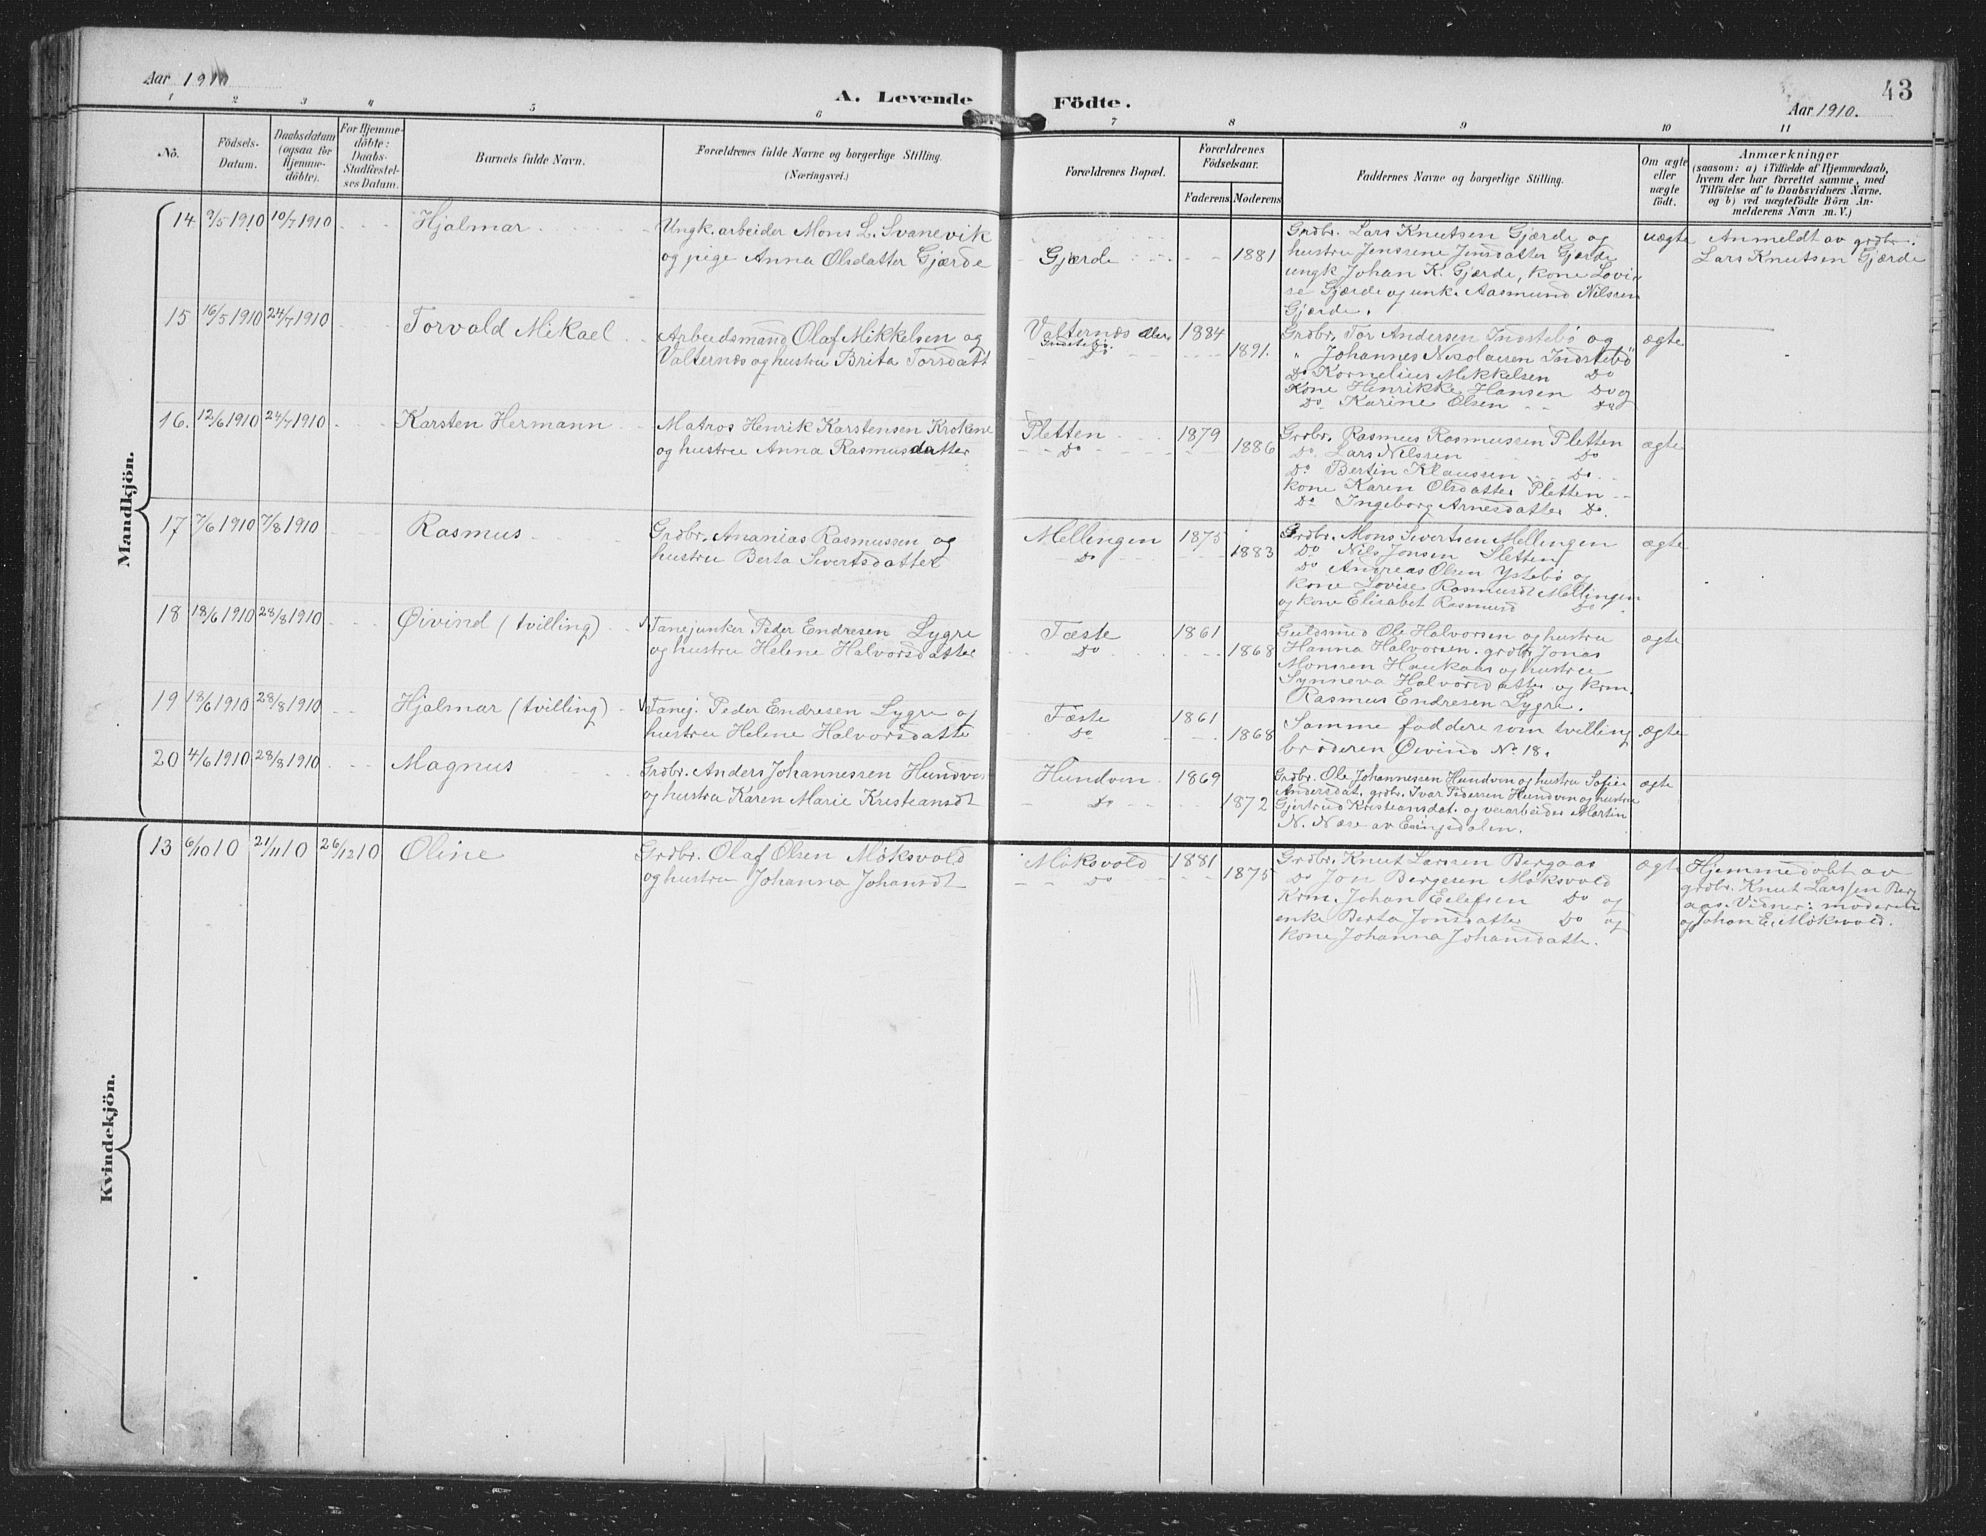 Aar 1910
A. Levende Födte.
43
Aar 1910.
1 2 3 4 5 6 7 8 9 10 11
No.
Födsels-Datum.
Daabsdatum (ogsaa for Hjemme-döbte).
For Hjemme-döbte: Daabs-Stadfæstel-ses Datum.
Barnets fulde Navn.
Forældrenes fulde Navne og borgerlige Stilling.
(Næringsvei.)
Forældrenes Bopæl.
Forældrenes Födselsaar.
Faderens Moderens
Faddernes Navne og borgerlige Stilling.
Om ægte eller uægte födt.
Anmærkninger
(saasom: a) i Tilfælde af Hjemmedaab,
hvem der har forrettet samme, med
Tilföielse af to Daabsvidners Navne.
og b) ved uægtefödte Börn An-
melderens Navn m. V.)
Mandkjön.
14 9/5 1910 10/7 1910 Hjalmar
Ungk. arbeider Mons L. Svanevik
og pige Anna Olsdatter Gjærde
Gjærde 1881
Grdbr. Lars Knutsen Gjærde og
hustru Jenssine Jensdatter Gjærde
ungk Johan K. Gjærde, kone Lovi
se Gjærde og unk. Aasmund Nilssen
Gjærde.
uægte
Anmeldt av grdbr.
Lars Knutsen Gjærde
15 16/5 1910 24/7 1910 Torvald Mikael
Arbeidsmand Olaf Mikkelsen og
Valternæs og hustru Brita Torsdatt
Valternæs 1884
Do 1891.
Grdbr. Tor Andersen Indstebö og
" Johannes Nicolaisen Indstebö
Do Kornelius Mikkelsen Do
Kone Henrikke Hansen Do og
Do Karine Olsen Do
ægte
16. 12/6 1910 24/7 1910 Karsten Hermann
Matros Henrik Karstensen Krokene
og hustru Anna Rasmusdatter
Sletten 1879
Do 1886
Grdbr. Rasmus Rasmussen Sletten
Do. Lars Nilssen Do
Do Bertin Klaussen Do
kone Karen Olsdatter Sletten
Do Ingeborg Arnesdatter Do.
ægte
17 7/6 1910 7/8 1910 Rasmus
Grdbr. Ananias Rasmussen og
hustru Berta Sivertsdatter
Mellingen 1875
Do 1883
Grdbr. Mons Sivertsen Mellingen
Do Nils Jonsen Sletten
Do Andreas Olsen Ystebö og
kone Lovise Rasmusdt Mellingen
og kone Elisabet Rasmusd Do
ægte
18 18/6 1910 28/8 1910 Øivind (tvilling)
Fanejunker Peder Endresen Lygre
og hustru Helene Halvorsdatter
Fæste 1861
Do 1868
Guldsmed Ole Halvorsen og hustru
Hanna Halvorsen. grdbr Jonas
Monssen Haukaas og hustru
Synneva Halvorsdatter og krm.
Rasmus Endresen Lygre.
ægte
19 18/6 1910 28/8 1910 Hjalmar (tvilling)
Fanej. Peder Endresen Lygre og
hustru Helene Halvorsdatte
Fæste 1861
Do 1868
Samme faddere som tvilling
broderen Øivind No 18.
ægte
20 4/6 1910 28/8 1910 Magnus
Grdbr. Anders Johannessen Hundven
og hustru Karen Marie Kristiansdt
Hundven 1869
Do 1872
Grdbr. Ole Johannessen Hundven og hustru Sofie
Andersdat. grdbr. Ivar Pedersen Hundven og hustru
Gjertrud Kristiansdat. og veiarbeider Martin
N. Næse av
ægte
Kvindekjön.
13 6/10 10 21/11 10 26/12 10 Oline
Grdbr. Olaf Olsen Möksvold
og hustru Johanna Johansdt
Möksvold 1881
Do 1875
Grdbr. Knut Larssen Bergaas
Do Jon Bergesen Möksvold
Krm. Johan Eilefsen Do og
enke Berta Jonsdatter Do og
kone Johanna Johansdatte.
ægte
Hjemmedöbt av
grdbr. Knut Larssen Berg
aas. Vidner: moderen
og Johan E. Mökvold.